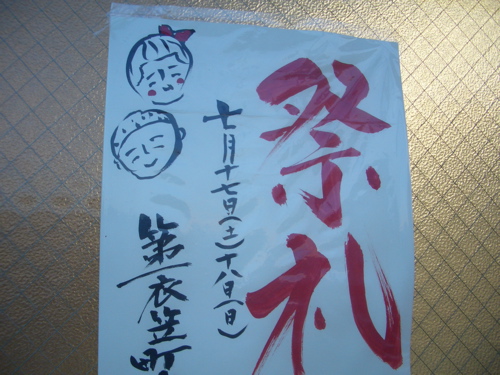 祭礼
七月十七日(土)十八日(日)
第一衣笠町